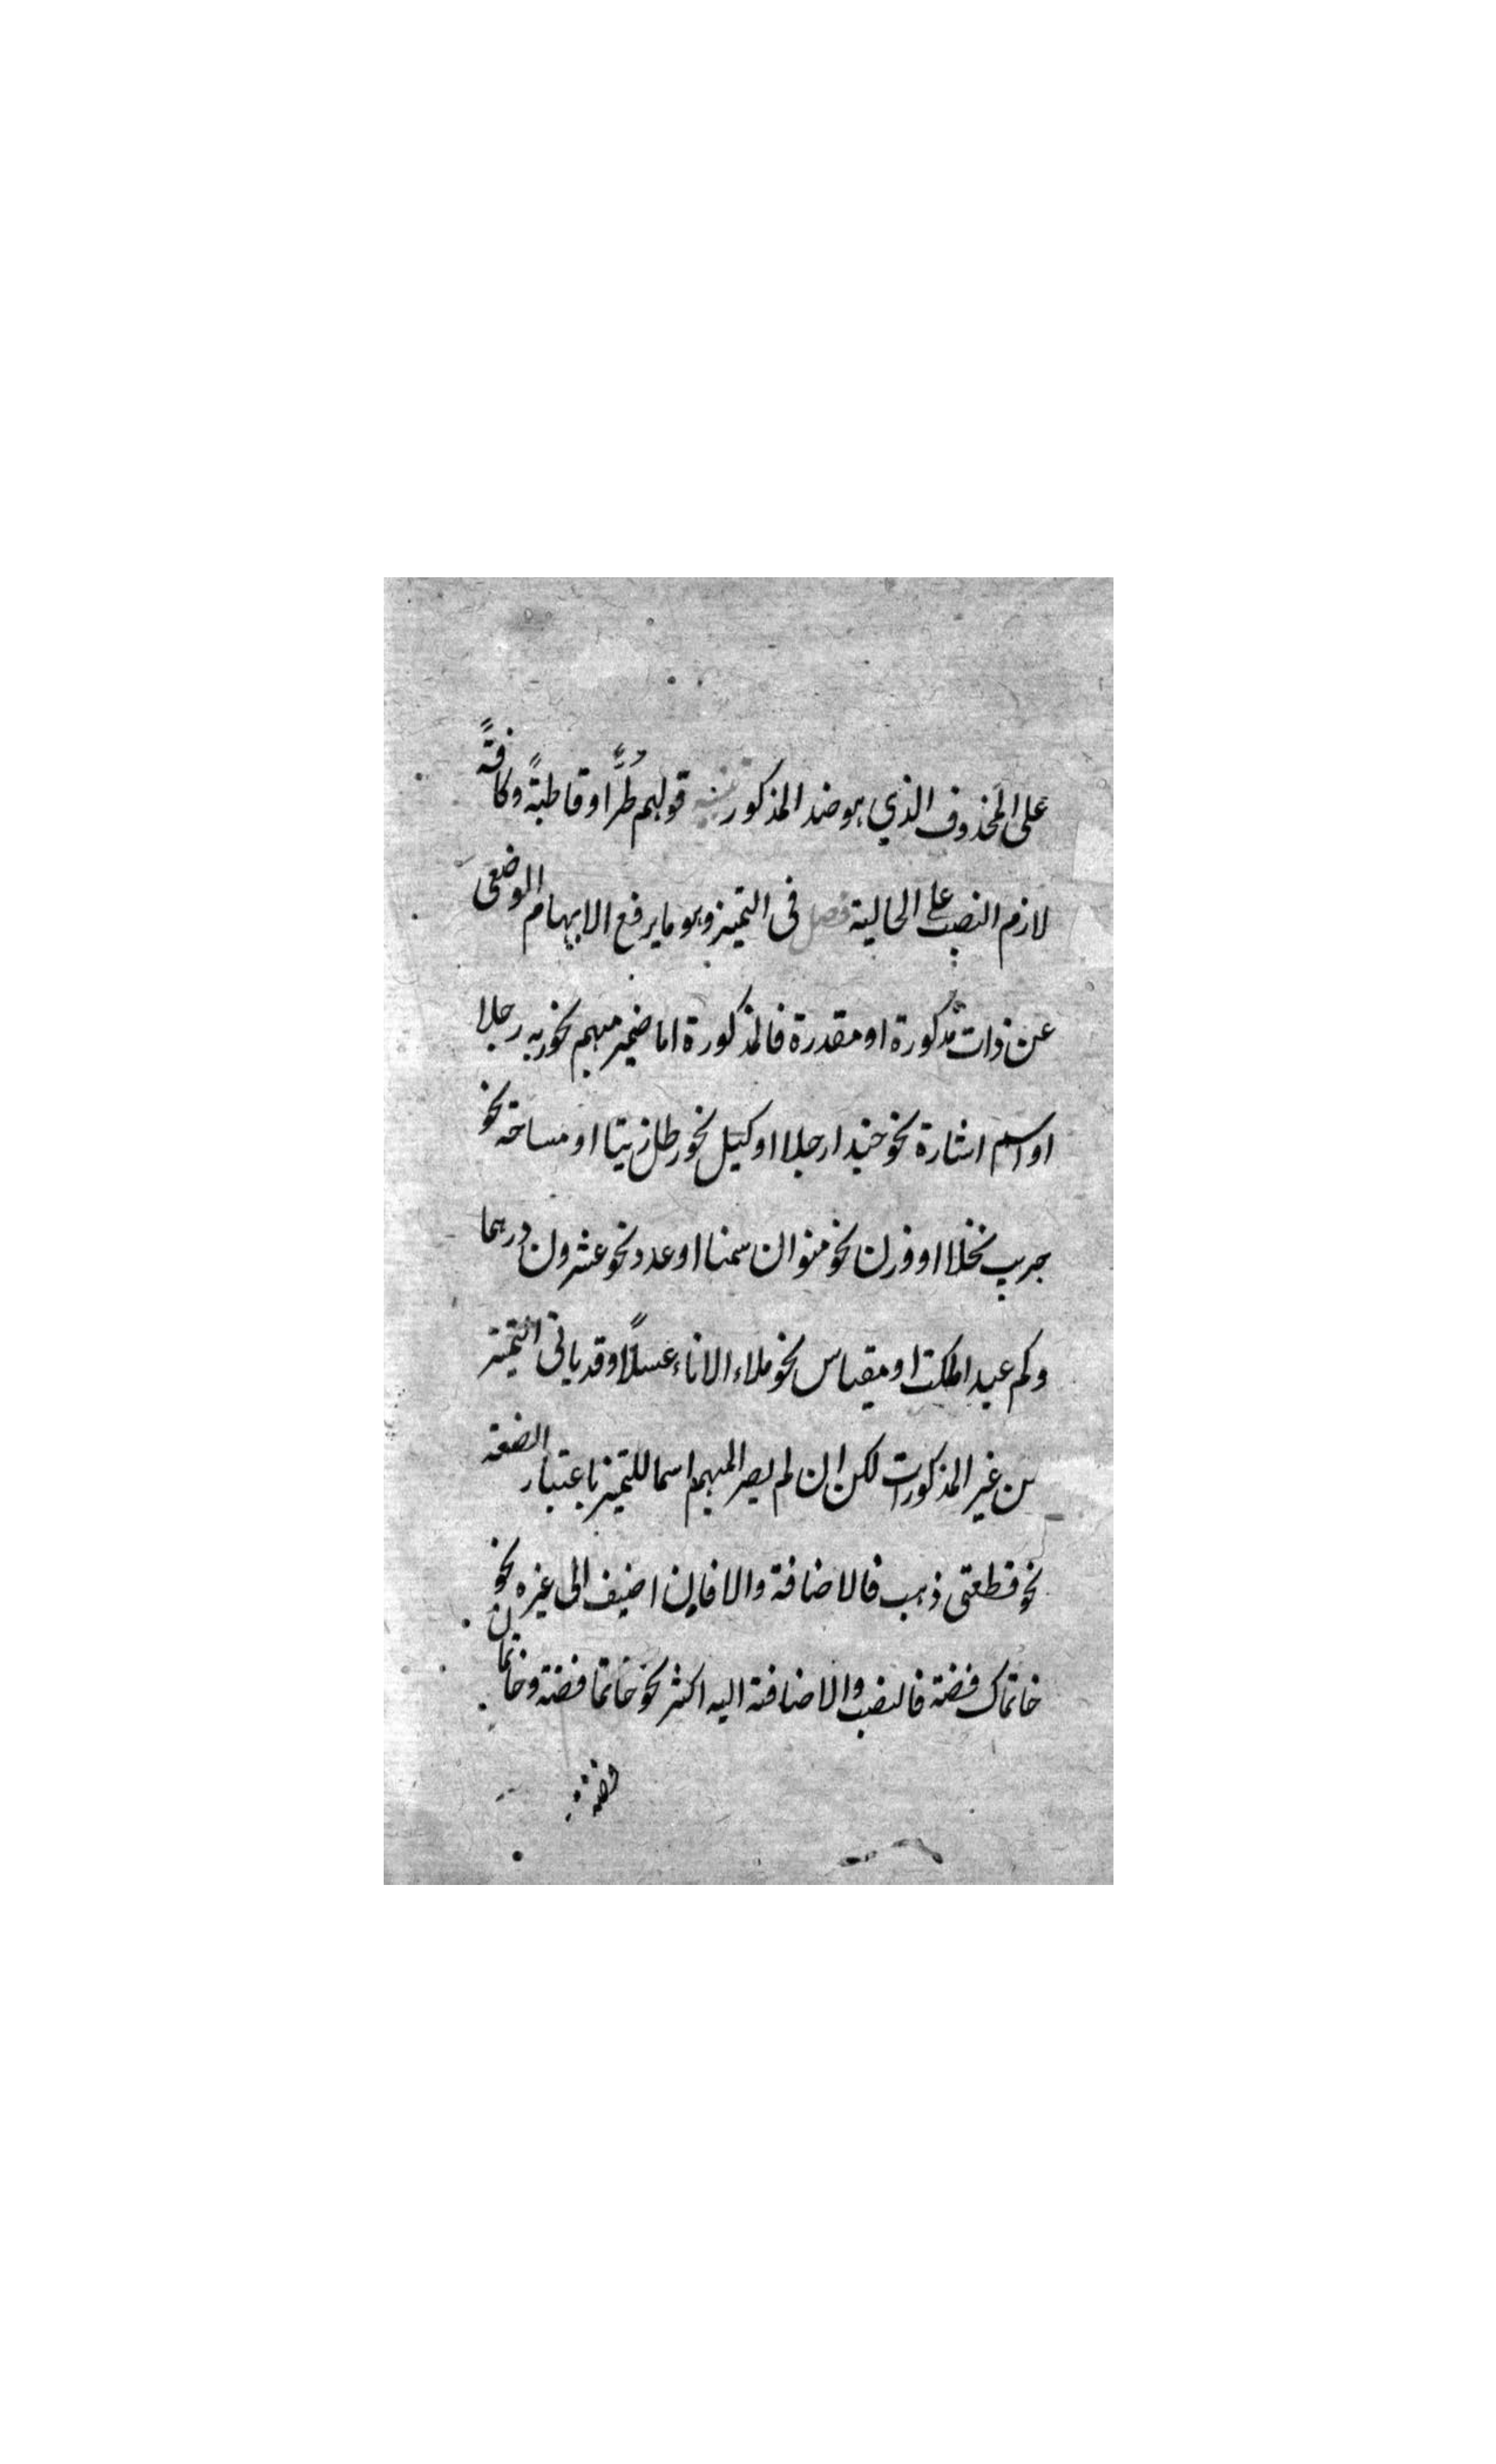 على المحذوف الذي هو ضد المذكور تنبيه قولهم طُرًّا وقاطبةً وكافةً
لازم النصب على الحالية فصل فى التميز وهو ما يرفع الابهام الوضعى
عن ذات مذكورة او مقدرة فالمذكورة اما ضمير مبهم نحو ربه رجلا
او اسم اشارة نحو حبذا رجلا او كيل نحو رطل زيتا او مساحة نحو
جريب نخلا او وزن نحو منوان سمنا او عدد نحو عشرون درهما
وكم عبدا ملكت او مقياس نحو ملاء الاناء عسلًا وقد ياتى التميز
من غير المذكورات لكن ان لم يصر المبهم اسما للتميز باعتبار الصنعة
نحو قطعتى ذهب فالاضافة والا فاِن اضيف الى غيره نحو
خاتمك فضة فالنصب والا ضافة اليه اكثر نحو خاتما فضة وخاتمان
فضة